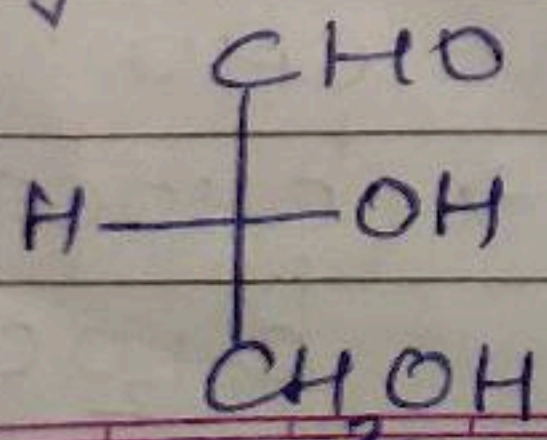 CHO
H OH
CH₂OH